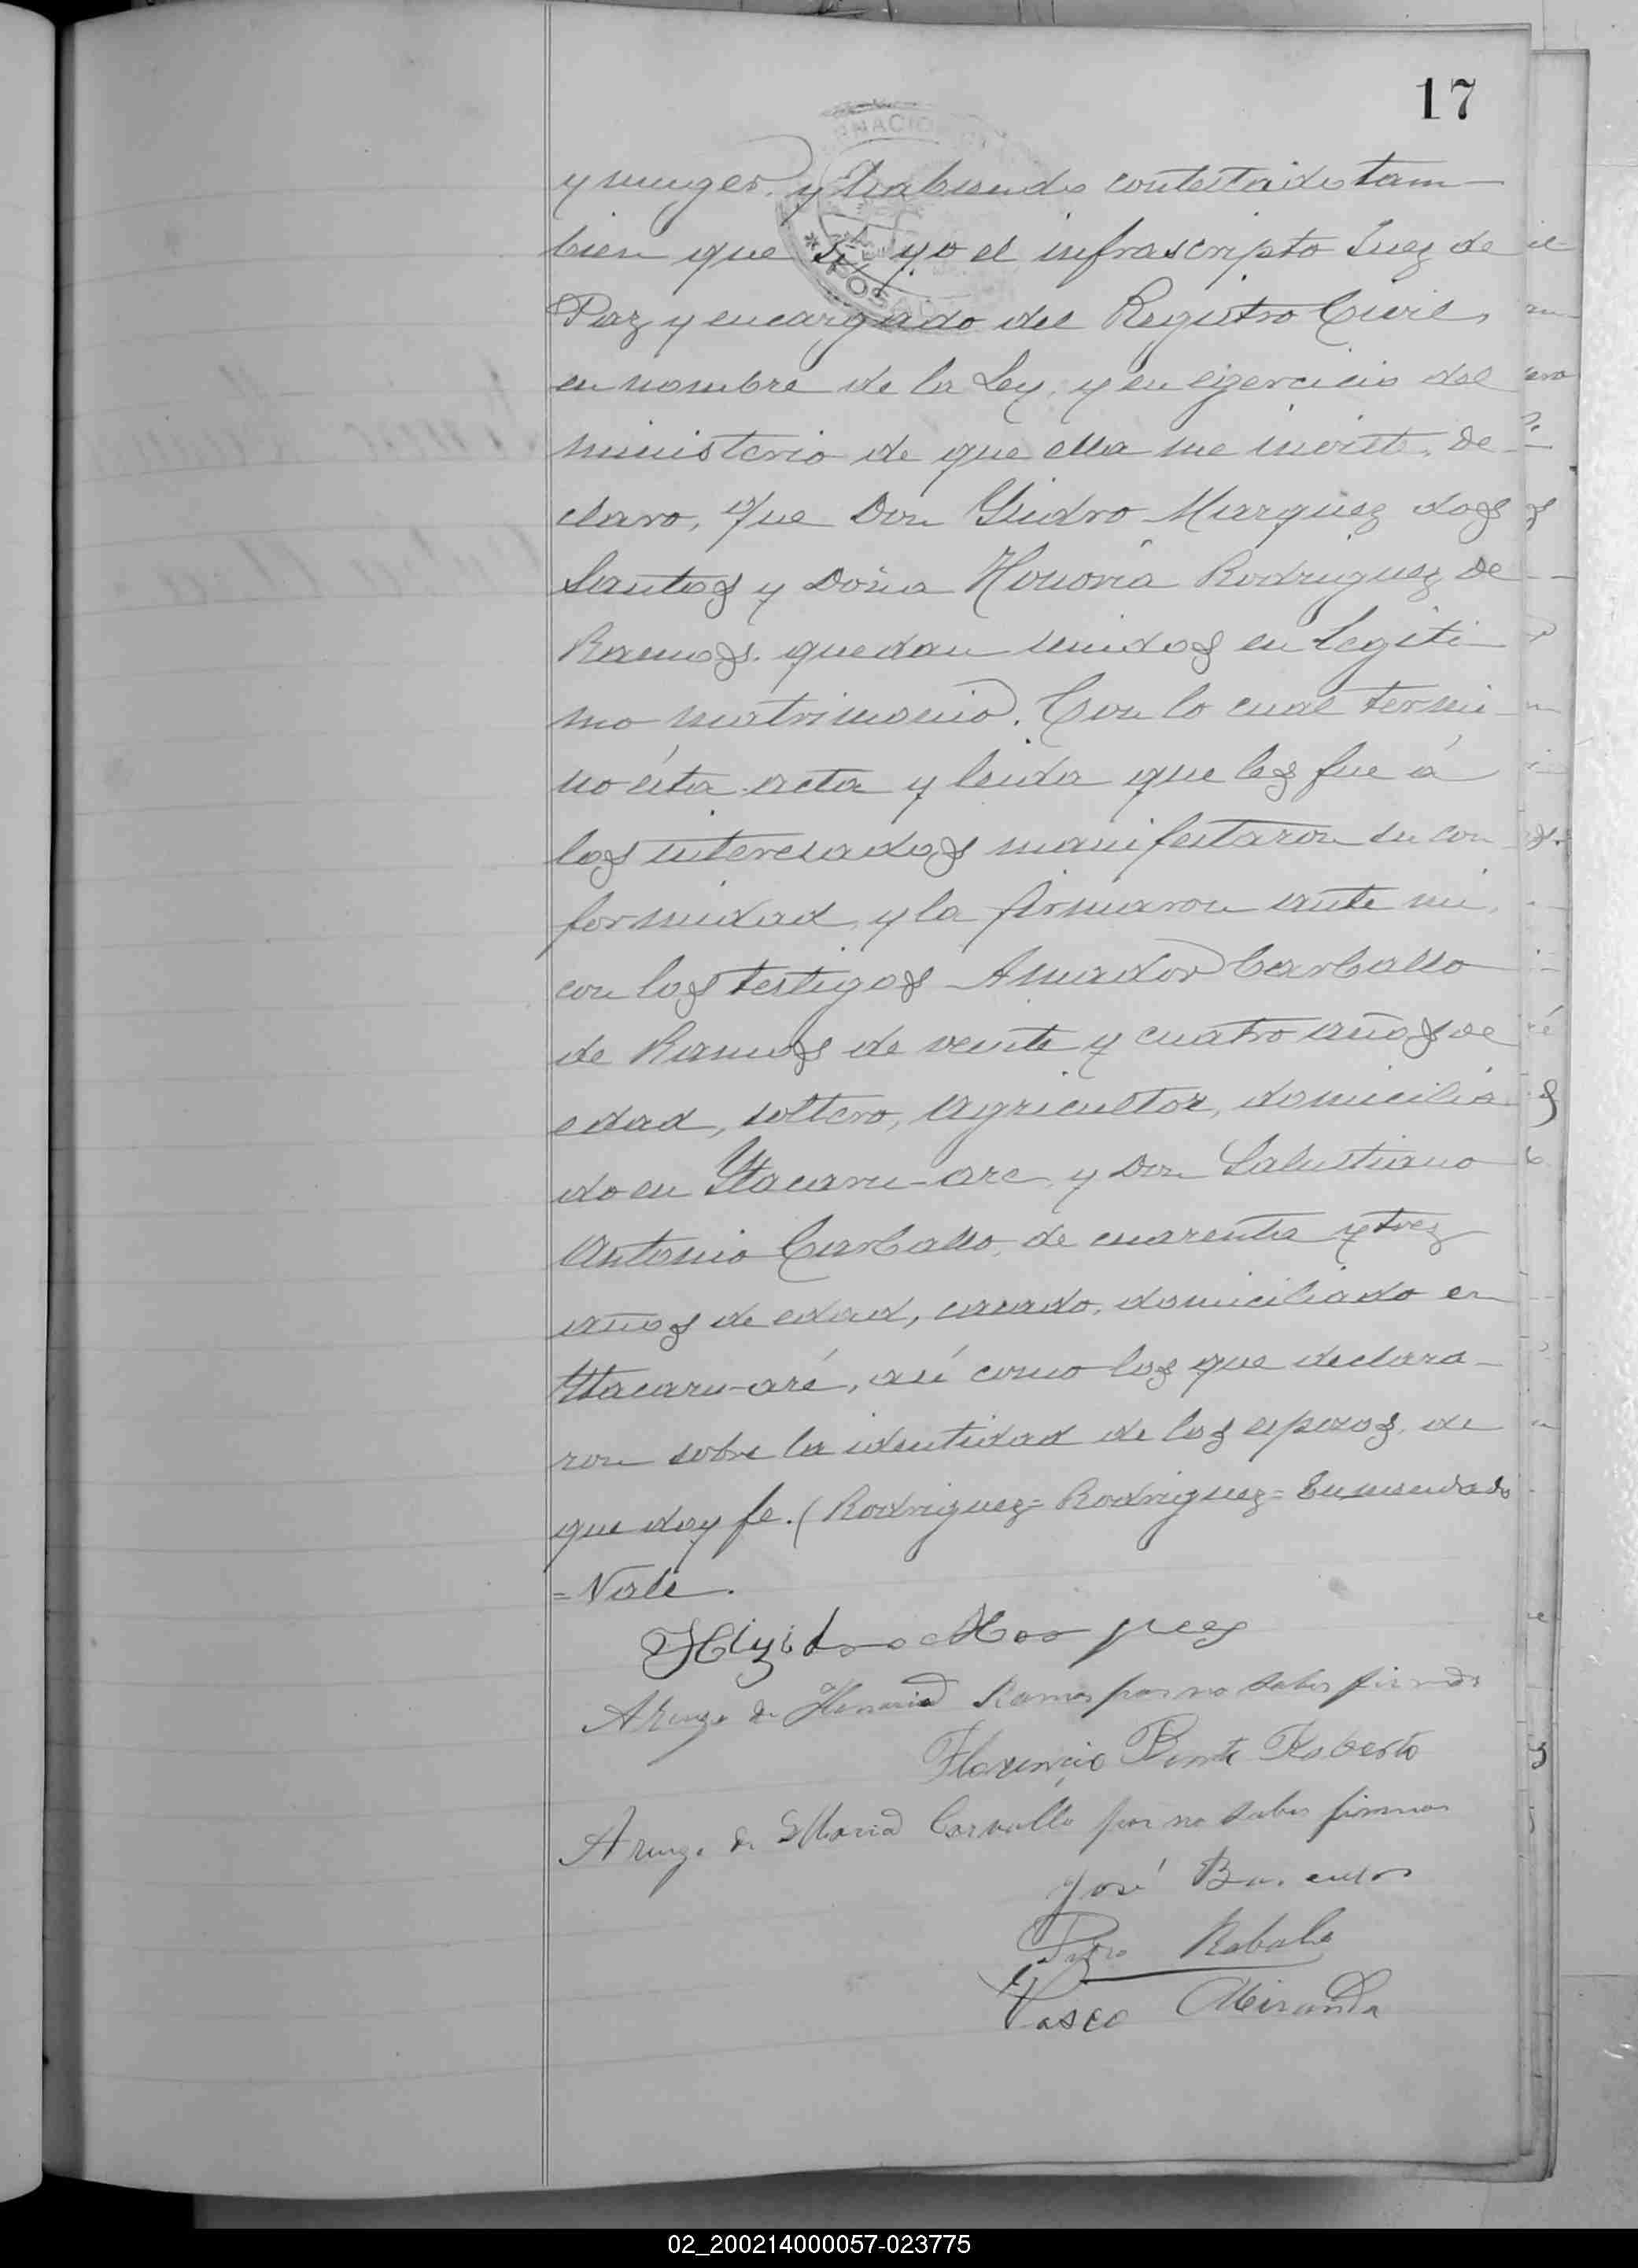 17
y muger, y habiendo contestado tam-
bien que sí, yo el infrascripto Juez de
Paz y encargado del Registro Civil,
en nombre de la Ley, y en egercicio del
ministerio de que ella me inviste, de-
claro, que Don Ysidro Marquez dos
Santos y Doña Honoria Rodriguez de
Ramos. quedan unidos en legiti-
mo matrimonio. Con lo cual termi-
nó ésta acta y leida que les fue á
los interesados manifestaron su con
formidad, y la firmaron ante mi,
con los testigos Amador Carballo
de Ramos de veinte y cuatro años de
edad, soltero, agricultor, domicilia
do en Ytacaru-are y Don Salustiano
Antonio Carballo, de cuarenta y tres
años de edad, casado, domiciliado en
Ytacaru-aré, así como los que declara-
ron sobre la identidad de los esposos, de
que doy fe. (Rodriguez = Rodriguez = Enmendado
= Vale.
A ruego de Honoria Ramos por no saber firmar
Florencio Roberto
A ruego de Maria Carvallo por no saber firmar
José
Pedro
Vasco Miranda
02_200214000057-023775